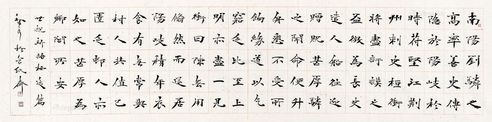 南陽劉驎之
高率善史傳
隱於陽岐于
時苻堅臨江荊
州刺史桓沖
將盡訏謨之
益徵為長史
遣人船往迎
贈貺甚厚驎
之聞命便升
舟悉不受所
餉緣道以乞
窮乏比至上
明亦盡一見
沖因陳無用
翛然而退居
陽岐積年衣
食有無常與
村人共值己
匱乏村人亦
如之甚厚為
鄉閭所安
世說新語棲逸篇